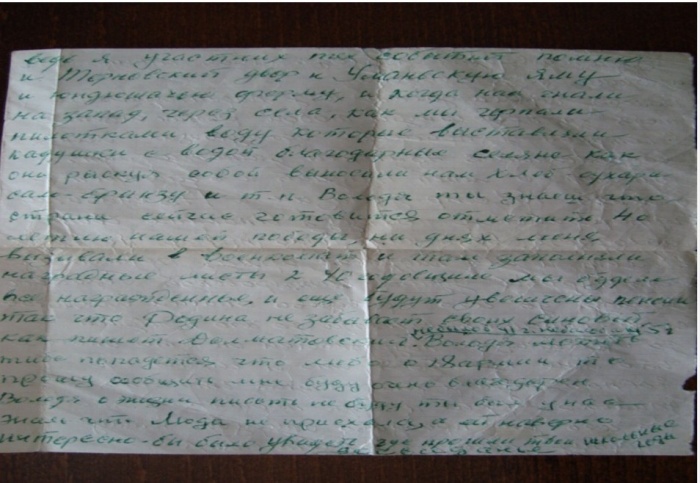 ведь я участник тех событий помню
и Терновский овраг и Уманьскую Яму
и курсантскую форму, и когда нас гнали
на запад, через села, как мы черпали
пилотками воду которые выставляли
кадушки с водой благодарные селяне как
они рискуя собой выносили нам хлеб сухари
сало-брынзу и т.п. Володя ты знаешь что
страна сейчас готовится отметить 40
летие нашей победы, на днях меня
вызывали в военкомат и там заполняли
наградные листы к 40 годовщине
награжденные, и еще будут увеличены пенсии
так что Родина не забывает своих сыновей
как пишет Долматовский. Володя может
тебе попадется что либо о
прошу сообщить мне буду очень благодарен
Володя о жизни писать не буду ты был у нас
знай что Люда не приехала а ей наверно
интересно-бы было увидеть где прошли твои школьные
года